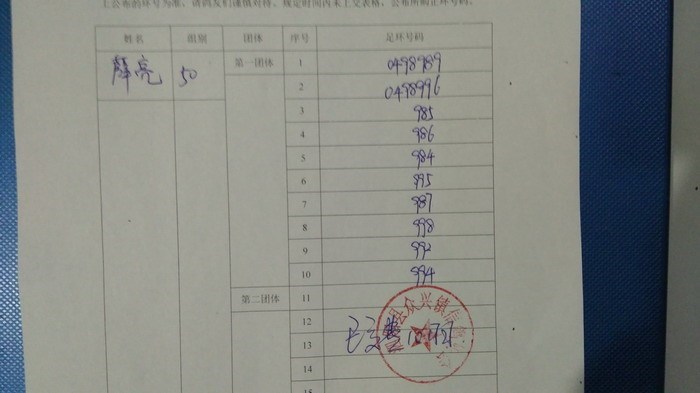 上公布的环号为准，请鸽友们谨慎对待，规定时间内未上交表格，公布所购正环号码。
姓名 组别 团体 序号 足环号码
薛亮 50 第一团体 1 0498989
2 0498996
3 985
4 986
5 984
6 995
7 987
8 998
9 992
10 994
第二团体 11
12
13
14
15
县众兴镇信